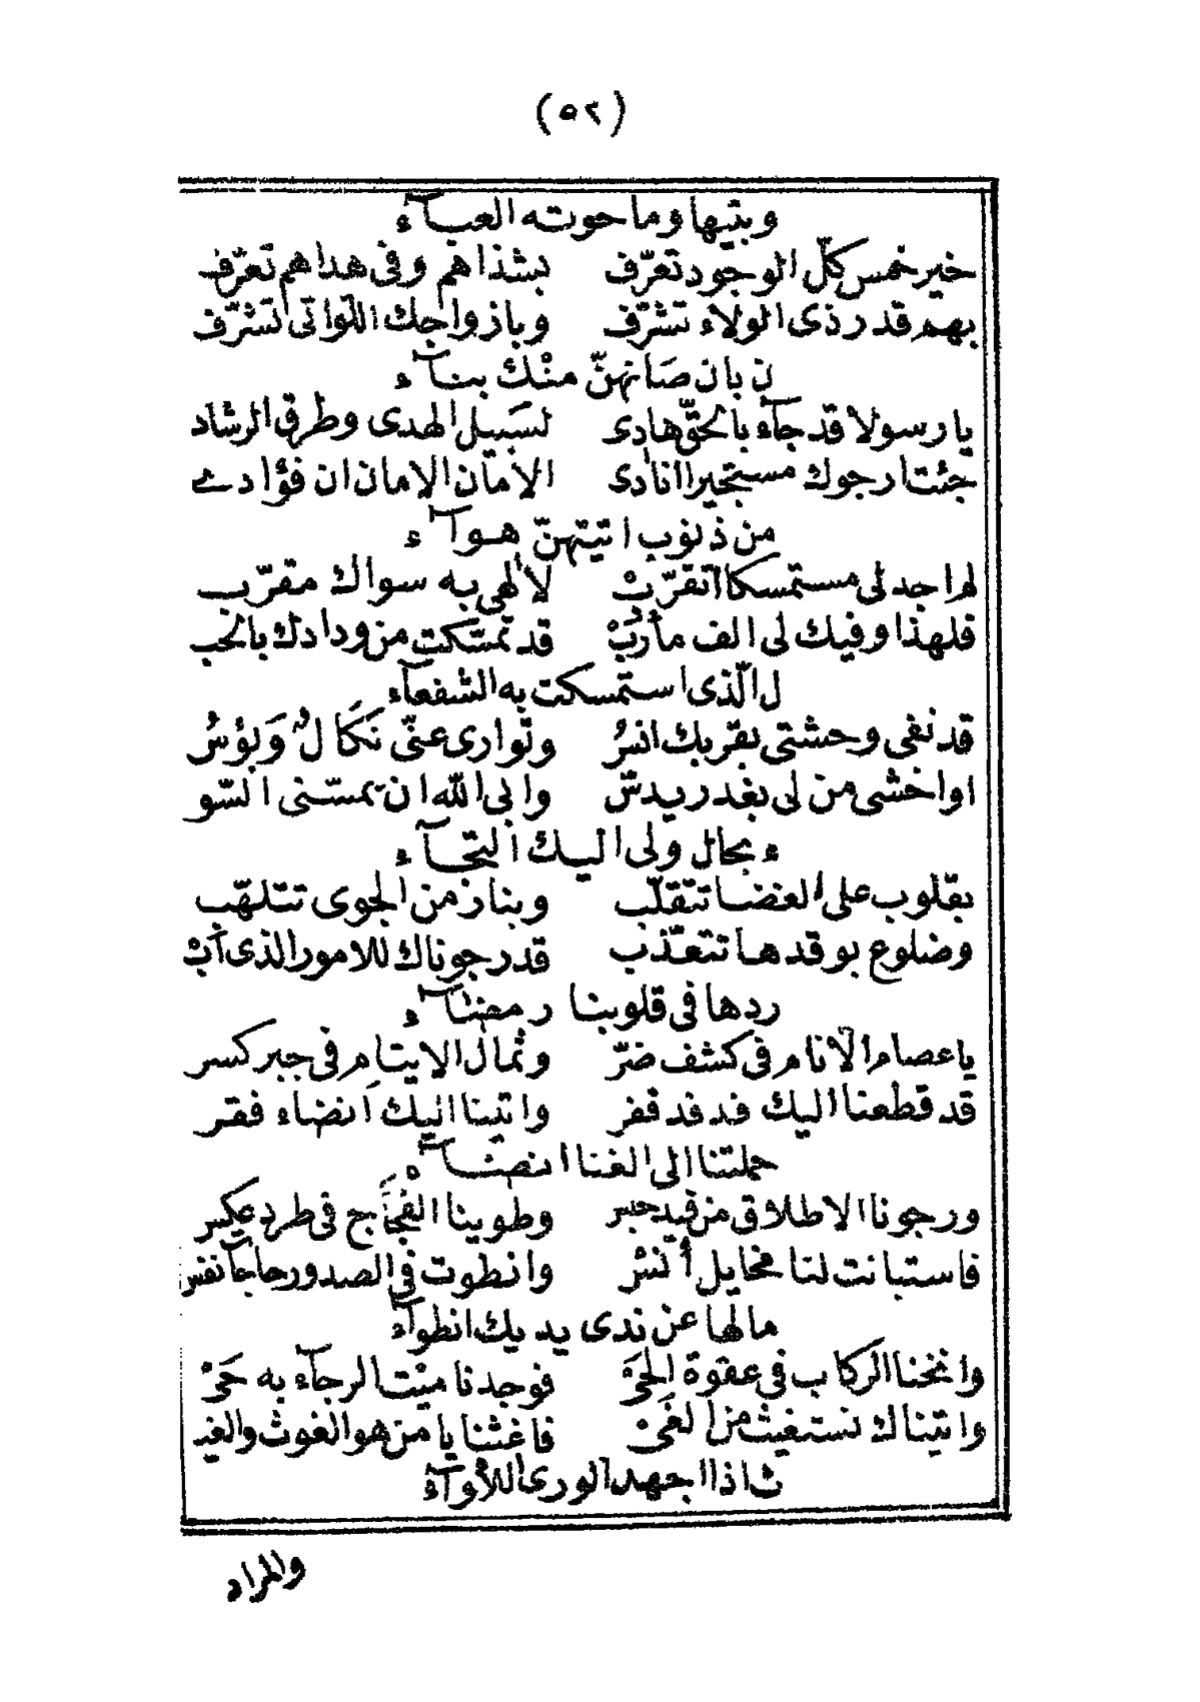 (٥٢)
وبنيها وما حوته العبآء
خير خمس كلّ الوجود تعرّف بشذاهم وفى هداهم تعرّف
بهم قدر ذى الولاء تشرّف وبازواجك اللّواتى تشرّف
ن بان صَانهنّ منْك بنآء
يا رسولا قد جآء بالحقّ هادى لسَبيل الهدى وطرق الرشاد
جئت ارجوك مستجيرا انادى الامان الامان ان فؤادے
من ذنوب اتيتهنّ هوآء
لم اجد لى مستمسكا اتقرّبْ لالهى به سواك مقرّب
فلهذا وفيك لى الف مأربْ قد تمسّكت من ودادك بالحب
ل الّذى استمسكت به الشفعآء
قد نفى وحشتى بقربك انسُ وتوارى عنّى نَكَالٌ وَبؤسُ
اواخشى من لى بغد ريدسّ وابى الله ان يمسّنى السّو
ء بحال ولى اليك التجآء
بقلوب على الغضا تتقلّب وبنار من الجوى تتلهّب
وضلوع بوقدها تتعذّب قد رجوناك للامور الذى ابْ
ردها فى قلوبنا رمضآء
يا عصام الانام فى كشف ضرّ وثمال الايتام فى جبر كسر
قد قطعنا اليك فدفد قفر واتينا اليك انضاء فقر
حملتنا الى الغنا انضآء
ورجونا الاطلاق من قيد حبر وطوينا الْفجَاج فى طرد عكس
فاستبانت لنا مخايل أنس وانطوت فى الصدور حاجآت نفس
مالها عن ندى يديك انطوآء
وانخنا الركاب فى عقوة الحَىّ فوجدنا ميْت الرجآء به حَىْ
واتيناك نستغيث من الغَىْ فاغثنا يا من هو الغوث والغيـ
ث اذا اجهد الورى اللأوآء
والمراد